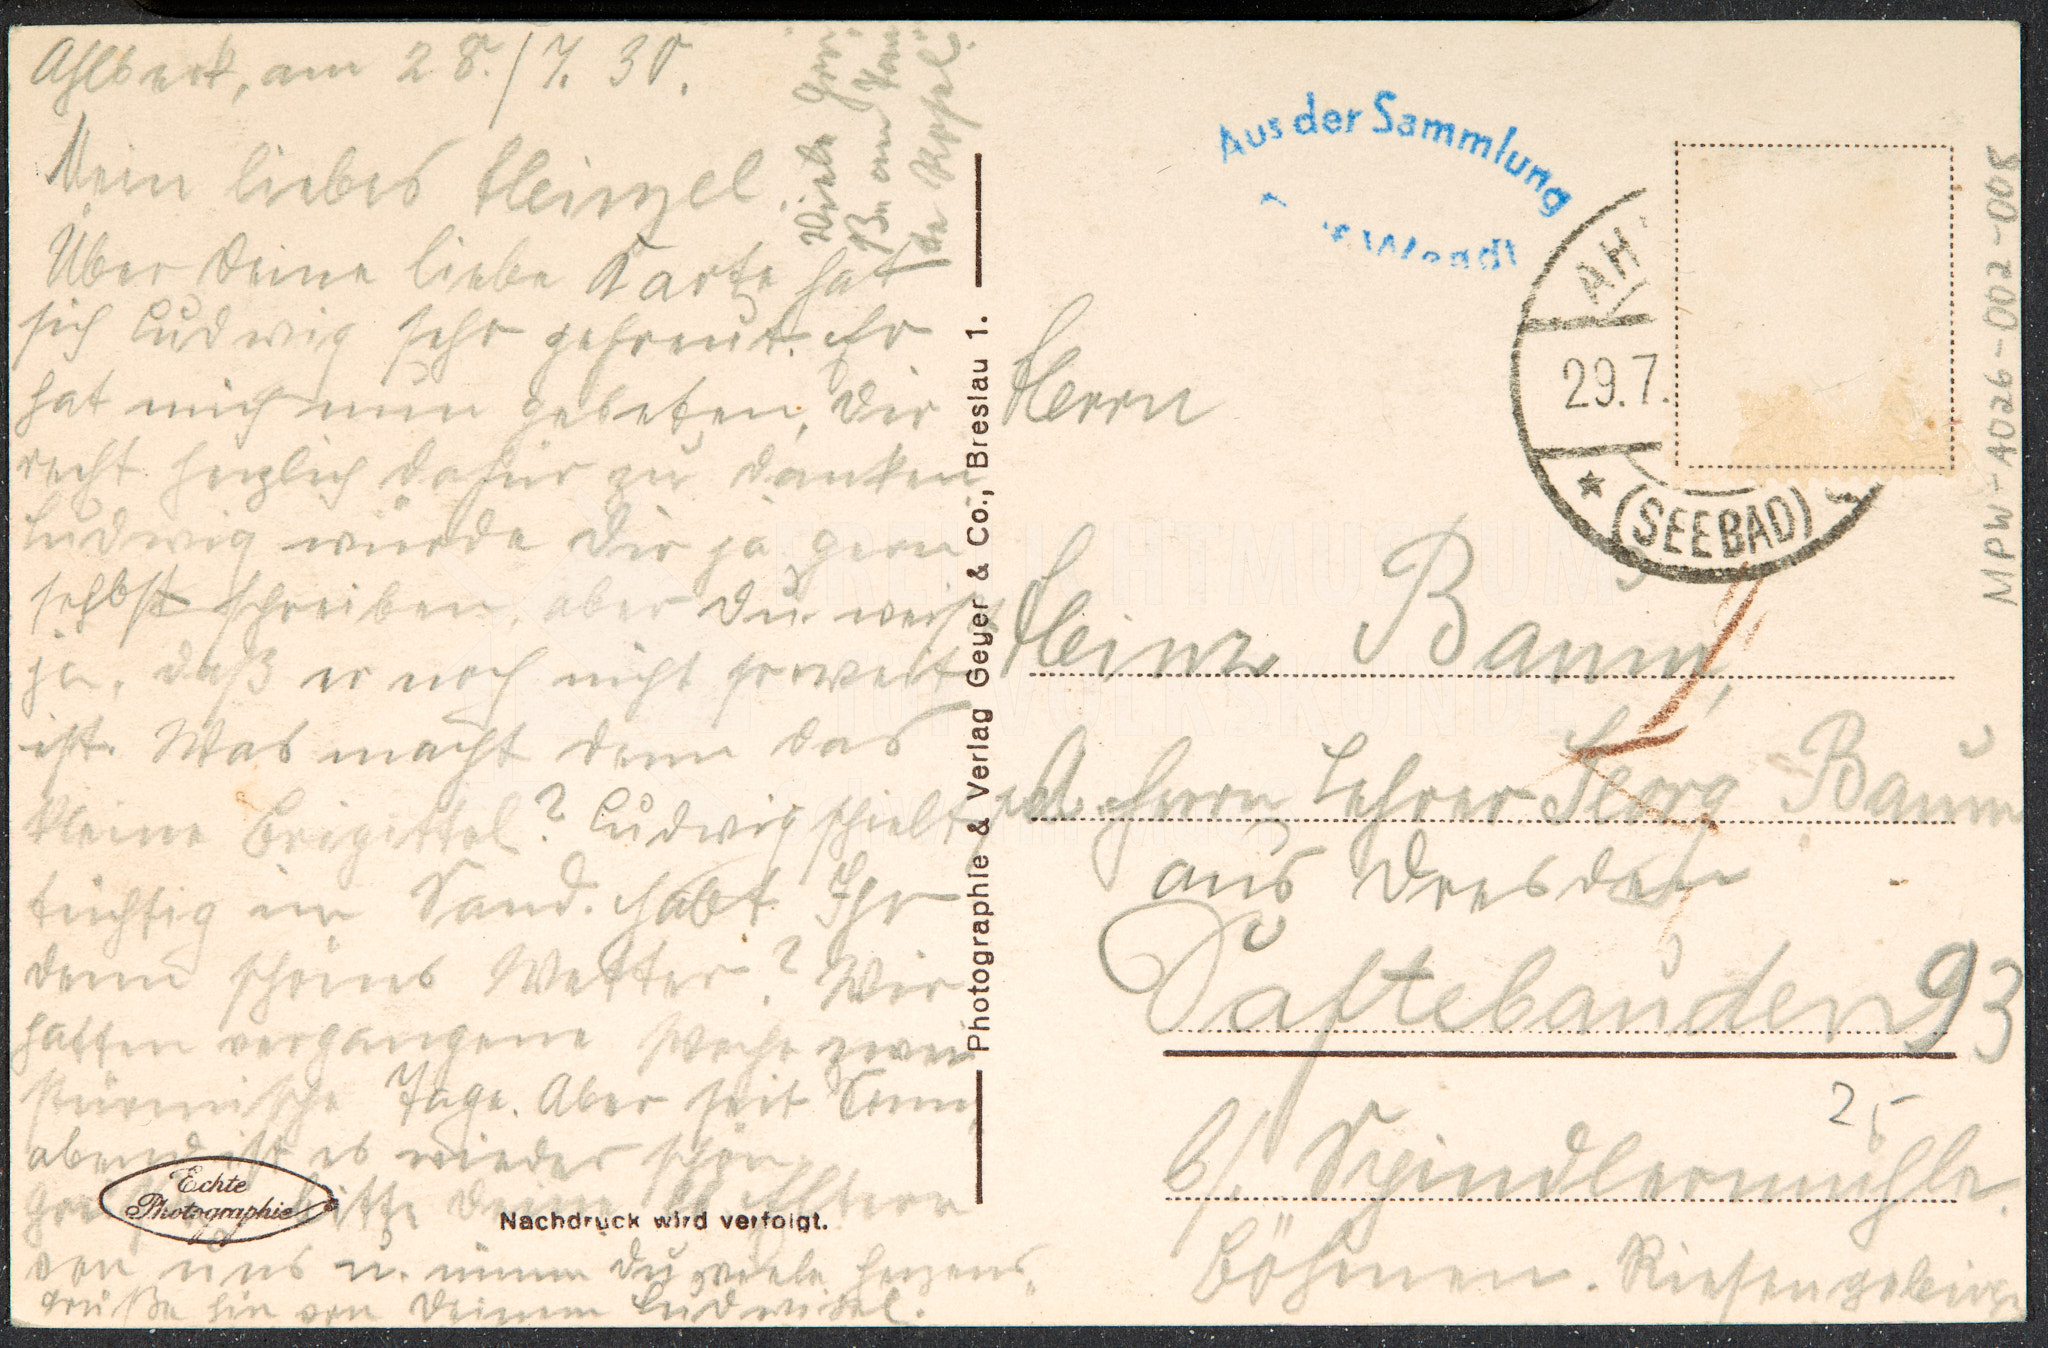 Ahlbeck, am 28./7. 30.
Mein liebes Heinzel.
Über Deine liebe Karte hat
sich Ludwig sehr gefreut. Er
hat mich nun gebeten, Dir
recht herzlich dafür zu danken
Ludwig würde Dir ja gern
selbst schreiben, aber Du weißt
ja, daß er noch nicht so weit
ist. Was macht denn das
kleine Brigittel? Ludwig spielt
tüchtig im Sand. Habt Ihr
denn schönes Wetter? Wir
hatten vergangene Woche zwei
stürmische Tage. Aber seit Sonn
abend ist es wieder schön.
bitte Deine Eltern
von uns u. nimm Du viele herzens
grüße hin von Deinem Ludwigel.
Viele
von
Photographie & Verlag Geyer & Co., Breslau 1.
Echte
Photographie
Nachdruck wird verfolgt.
Aus der Sammlung
AH
29.7.
(SEEBAD)
MPW-A026-002-008
Herrn
Heinz Baum,
Herrn Lehrer Georg Baum
aus Dresden
Daftebauden 93
25
b/. Spindlermühle.
Böhmen. Riesengebirge
FREILICHTMUSEUM
für VOLKSKUNDE